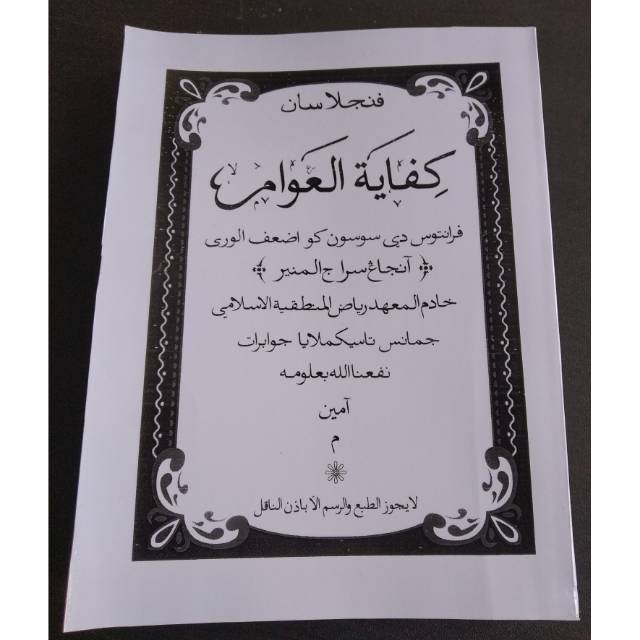 فنجلاسان
كفاية العوام
فرانتوس دي سوسون كو اضعف الورى
﴿ آنجاڠ سراج المنير ﴾
خادم المعهد رياض المنطقية الاسلامي
جمانس تاسيكملايا جوابرات
نفعنا الله بعلومه
آمين
م
لا يجوز الطبع والرسم الا باذن الناقل